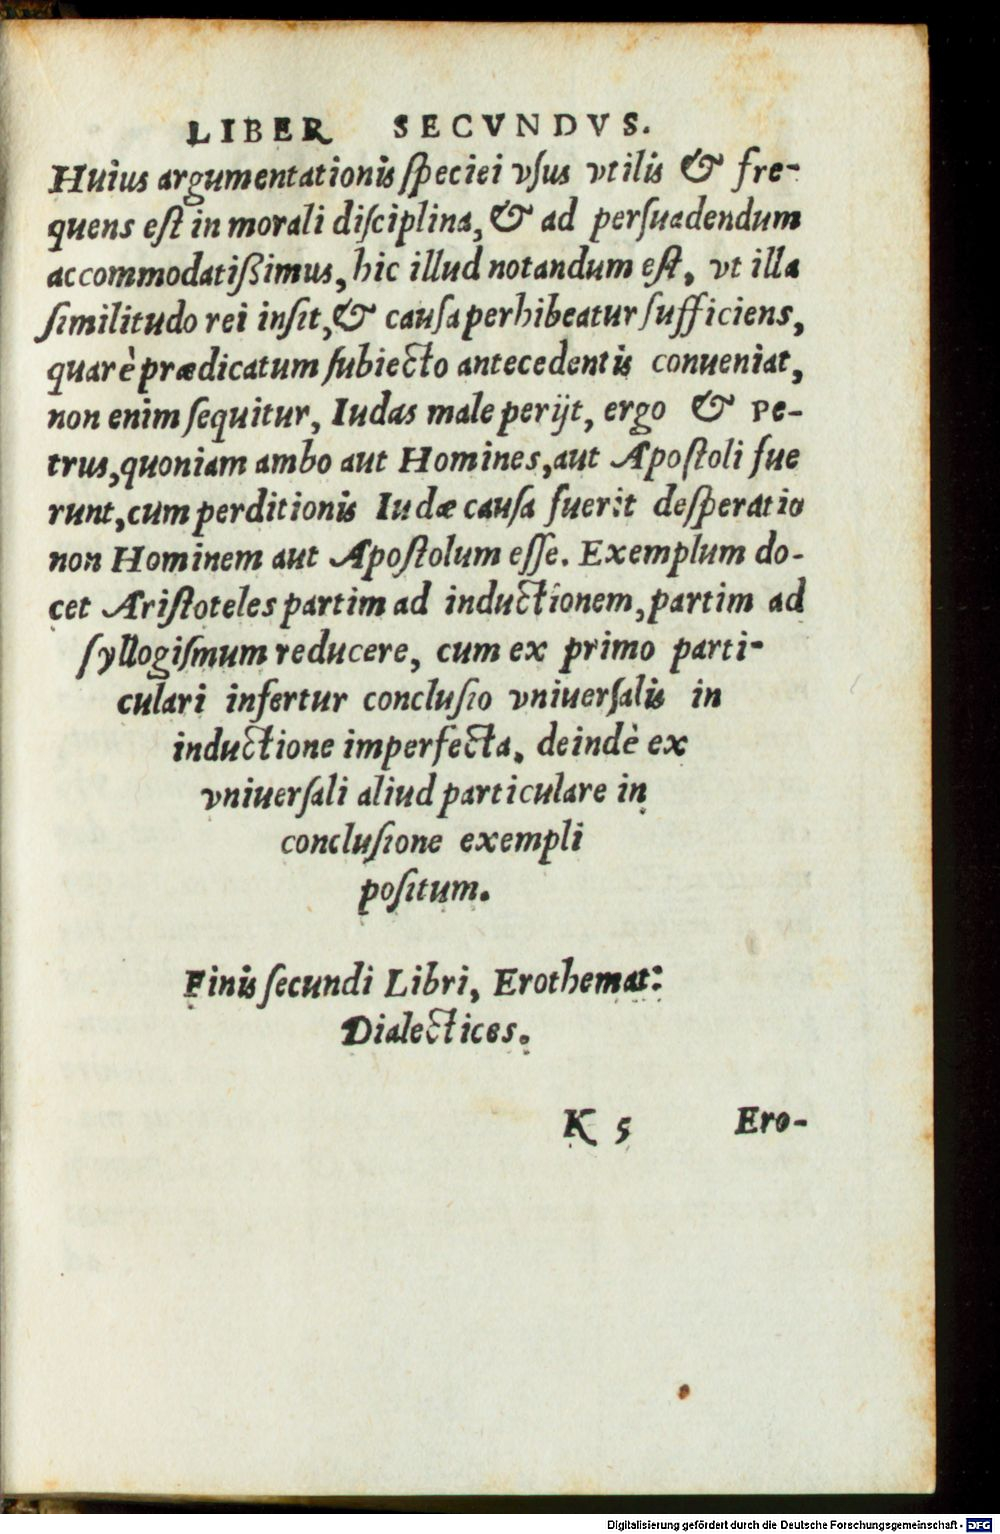 LIBER SECVNDVS.
Huius argumentationis ſpeciei vſus vtilis & fre-
quens eſt in morali diſciplina, & ad perſuadendum
accommodatißimus, hic illud notandum eſt, vt illa
ſimilitudo rei inſit, & cauſa perhibeatur ſufficiens,
quarè prædicatum ſubiecto antecedentis conueniat,
non enim ſequitur, Iudas male perijt, ergo & Pe-
trus, quoniam ambo aut Homines, aut Apoſtoli fue
runt, cum perditionis Iudæ cauſa fuerit deſperatio
non Hominem aut Apoſtolum eſſe. Exemplum do-
cet Ariſtoteles partim ad inductionem, partim ad
ſyllogiſmum reducere, cum ex primo parti-
culari infertur concluſio vniuerſalis in
inductione imperfecta, deindè ex
vniuerſali aliud particulare in
concluſione exempli
poſitum.
Finis ſecundi Libri, Erothemat:
Dialectices.
K 5 Ero-
Digitalisierung gefördert durch die Deutsche Forschungsgemeinschaft - DFG